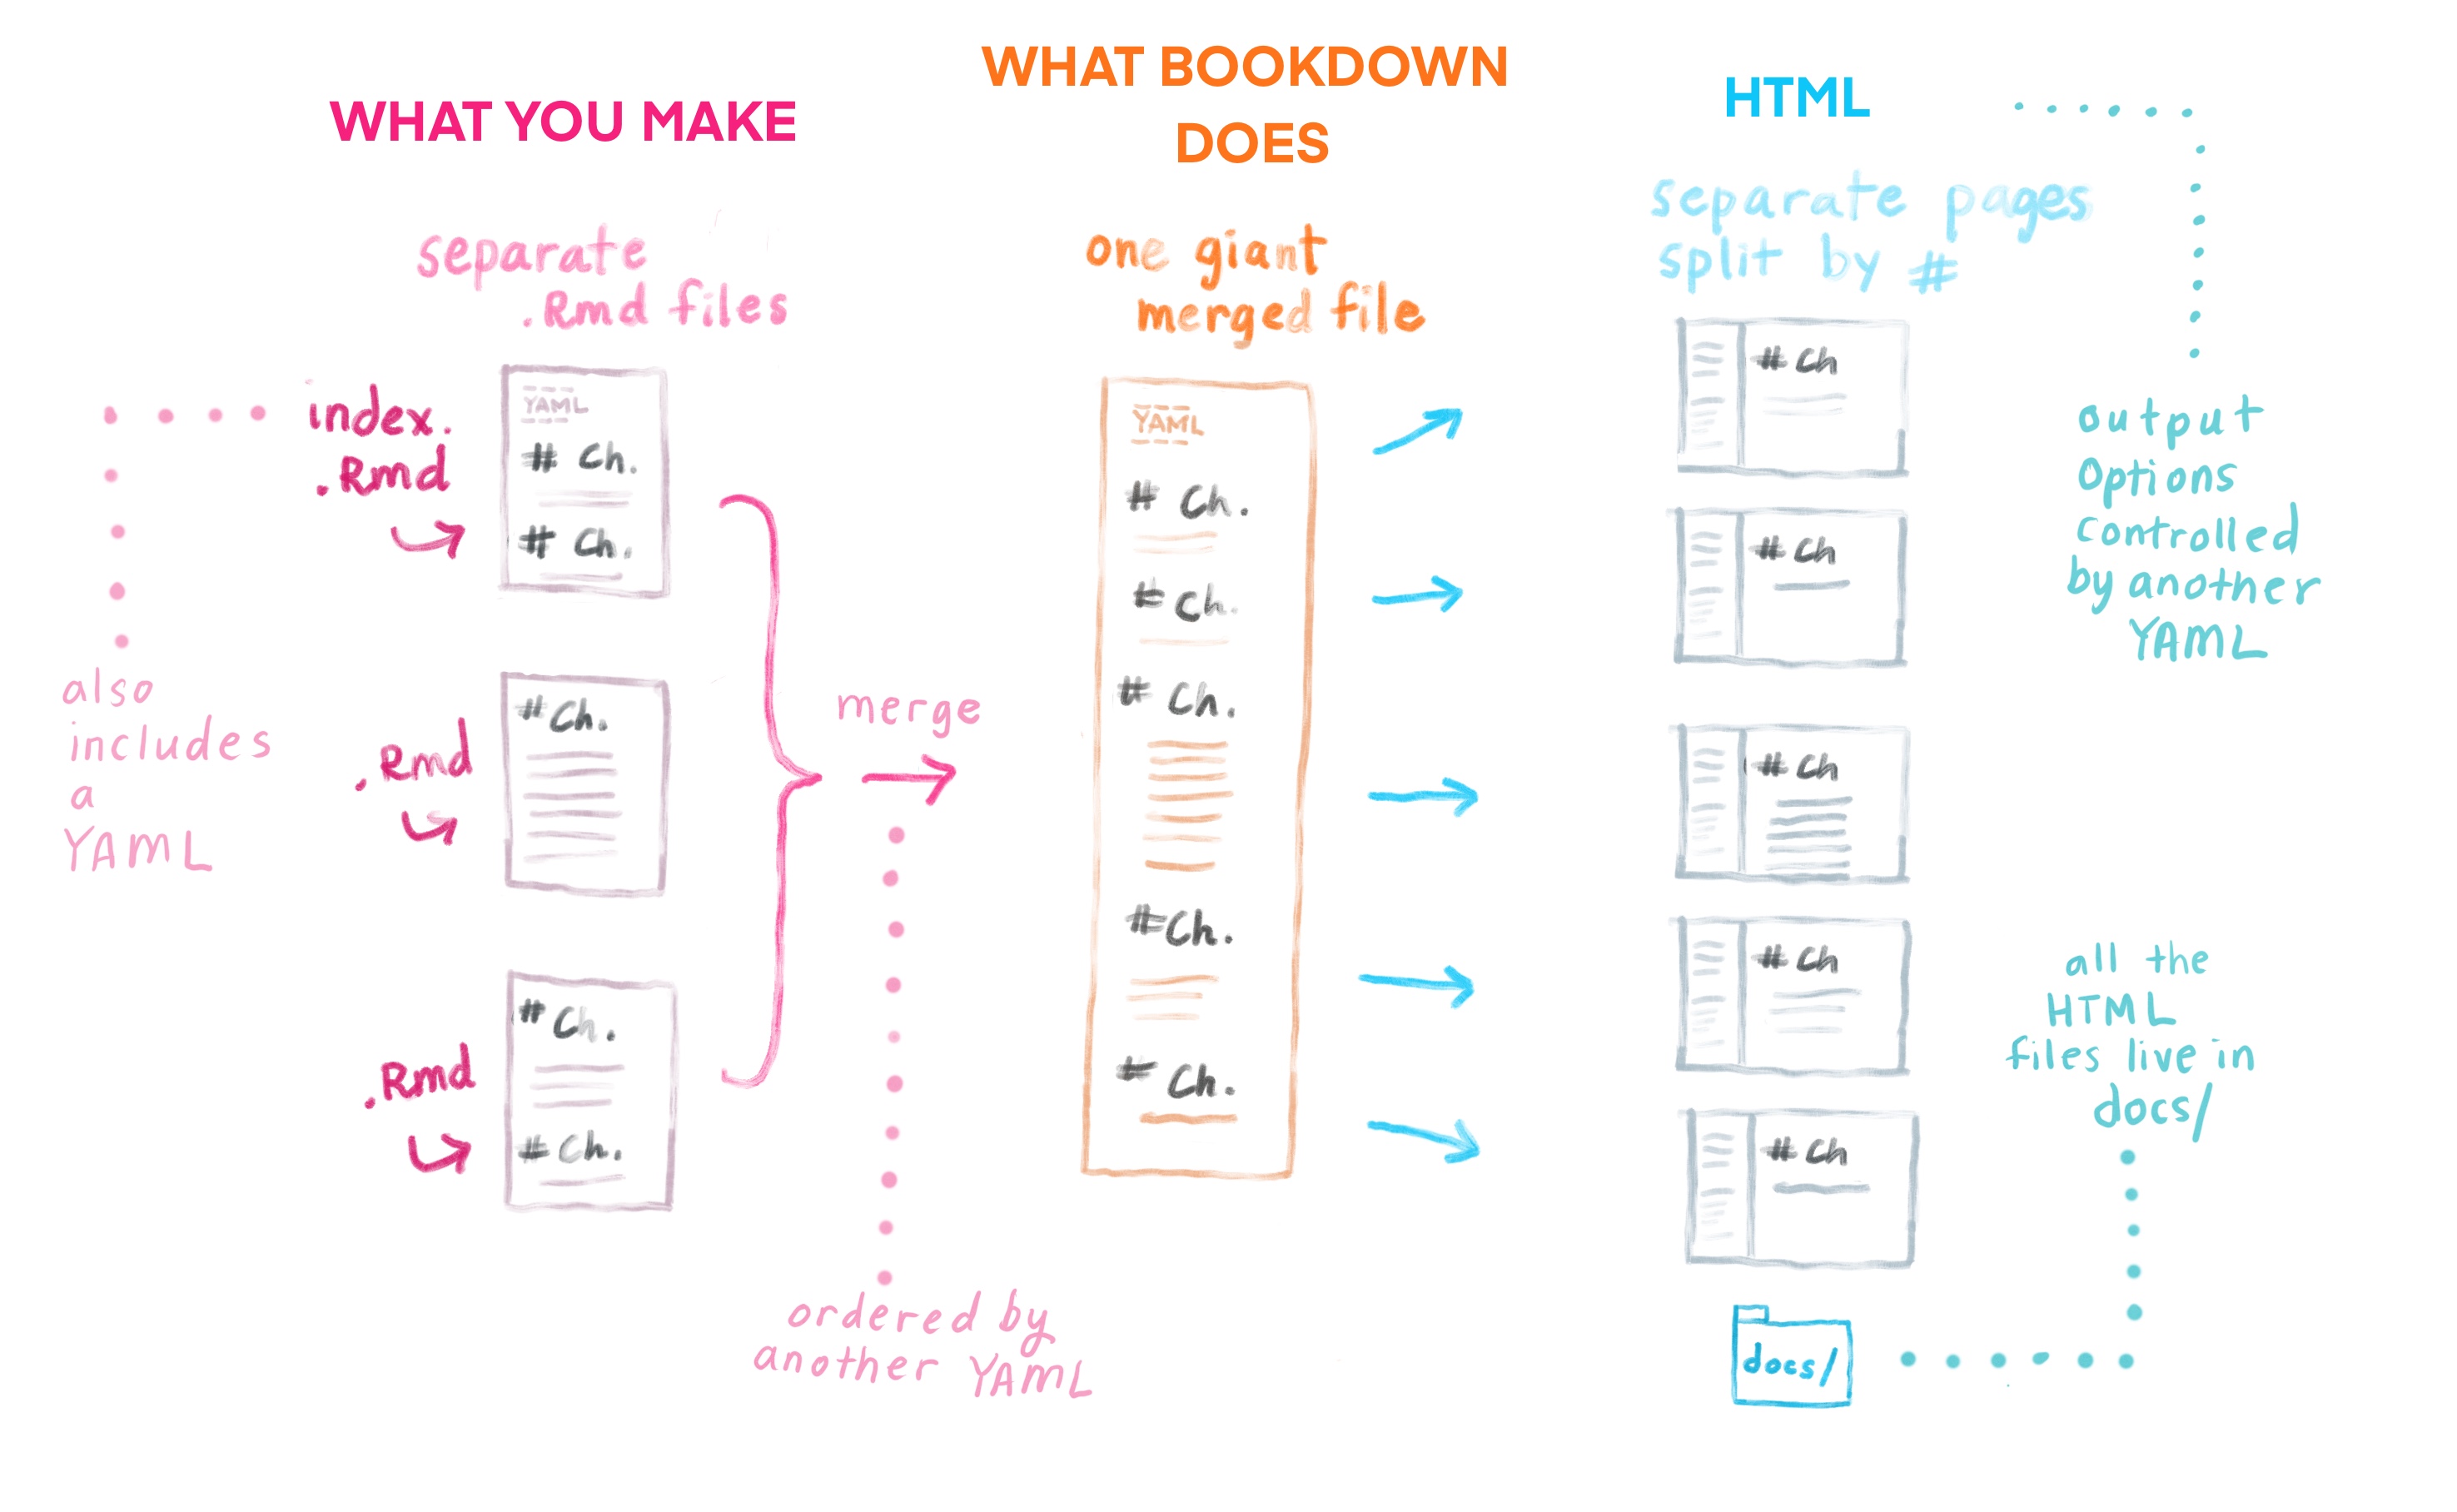 WHAT YOU MAKE
separate
.Rmd files
index.
.Rmd
YAML
# Ch.
# Ch.
also
includes
a
YAML
.Rmd
# Ch.
.Rmd
# Ch.
# Ch.
merge
ordered by
another YAML
WHAT BOOKDOWN
DOES
one giant
merged file
YAML
# Ch.
# Ch.
# Ch.
# Ch.
# Ch.
HTML
separate pages
split by #
# Ch
# Ch
# Ch
# Ch
# Ch
docs/
output
options
controlled
by another
YAML
all the
HTML
files live in
docs/